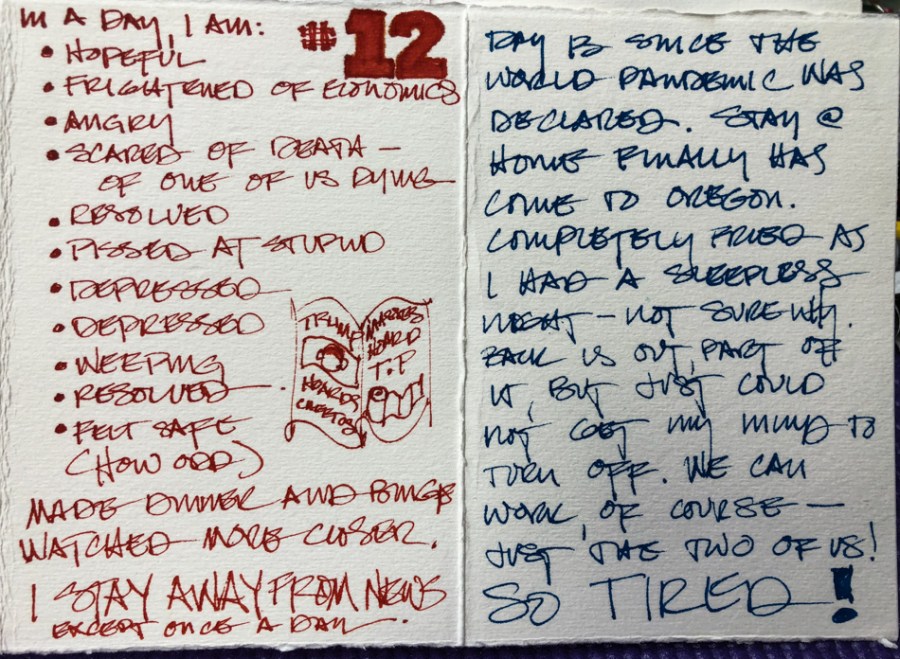 IN A DAY, I AM:
#12
• HOPEFUL
• FRIGHTENED OF ECONOMICS
• ANGRY
• SCARED OF DEATH —
OF ONE OF US DYING
• RESOLVED
• PISSED AT STUPID
• DEPRESSED
• DEPRESSED
• WEEPING
• RESOLVED
• FELT SAFE
(HOW ODD)
TRUMP
HOARDS
CHEETOS
MASSES
HOARD
T.P
MADE DINNER AND
WATCHED MORE CLOSER.
I STAY AWAY FROM NEWS
EXCEPT ONCE A DAY.
DAY 13 SINCE THE
WORLD PANDEMIC WAS
DECLARED. STAY @
HOME FINALLY HAS
COME TO OREGON.
COMPLETELY FRIED AS
I HAD A SLEEPLESS
NIGHT — NOT SURE WHY.
BACK IS OUT, PART OF
IT, BUT JUST COULD
NOT GET MY MIND TO
TURN OFF. WE CAN
WORK, OF COURSE —
JUST THE TWO OF US!
SO TIRED!